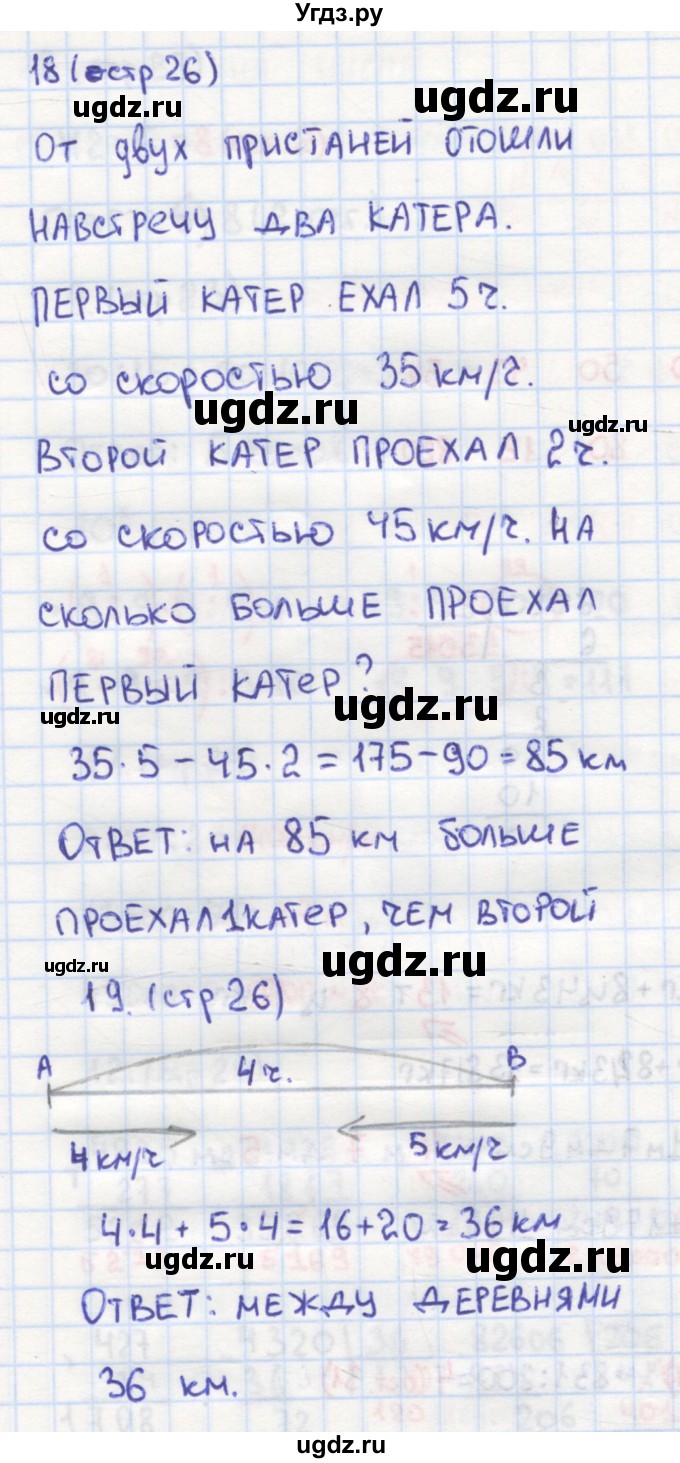 Угдз.ру
18 (стр 26)
ugdz.ru ugdz.ru
От двух пристаней отошли
навстречу два катера.
Первый катер ехал 5 ч.
со скоростью 35 км/ч.
ugdz.ru ugdz.ru
Второй катер проехал 2 ч.
со скоростью 45 км/ч. На
сколько больше проехал
первый катер?
ugdz.ru ugdz.ru
35·5 - 45·2 = 175 - 90 = 85 км
Ответ: на 85 км больше
проехал 1 катер, чем второй
ugdz.ru ugdz.ru
19. (стр 26)
A 4 ч. B
4 км/ч 5 км/ч
4·4 + 5·4 = 16 + 20 = 36 км
ugdz.ru ugdz.ru
Ответ: между деревнями
36 км.
ugdz.ru